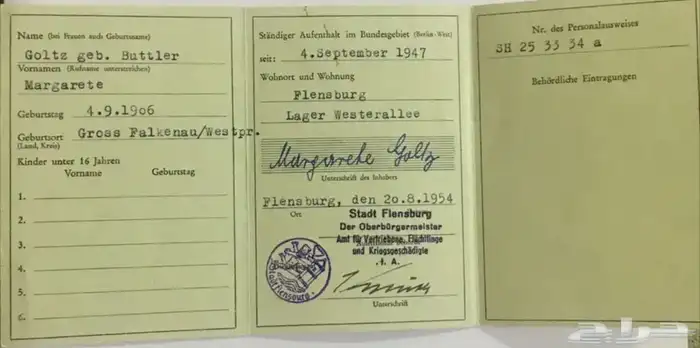 Name (bei Frauen auch Geburtsname)
Goltz geb. Buttler
Vornamen (Rufname unterstreichen)
Margarete
Geburtstag 4.9.1906
Geburtsort Gross Falkenau/Westpr.
(Land, Kreis)
Kinder unter 16 Jahren
Vorname Geburtstag
1.
2.
3.
4.
5.
6.
Ständiger Aufenthalt im Bundesgebiet (Berlin-West)
seit: 4.September 1947
Wohnort und Wohnung
Flensburg
Lager Westerallee
Margarete Goltz
Unterschrift des Inhabers
Flensburg, den 20.8.1954
Ort
Stadt Flensburg
Der Oberbürgermeister
Amt für Vertriebene, Flüchtlinge
und Kriegsgeschädigte
.I. A.
Stadt Flensburg
Unterschrift
Nr. des Personalausweises
SH 25 33 34 a
Behördliche Eintragungen
حراج